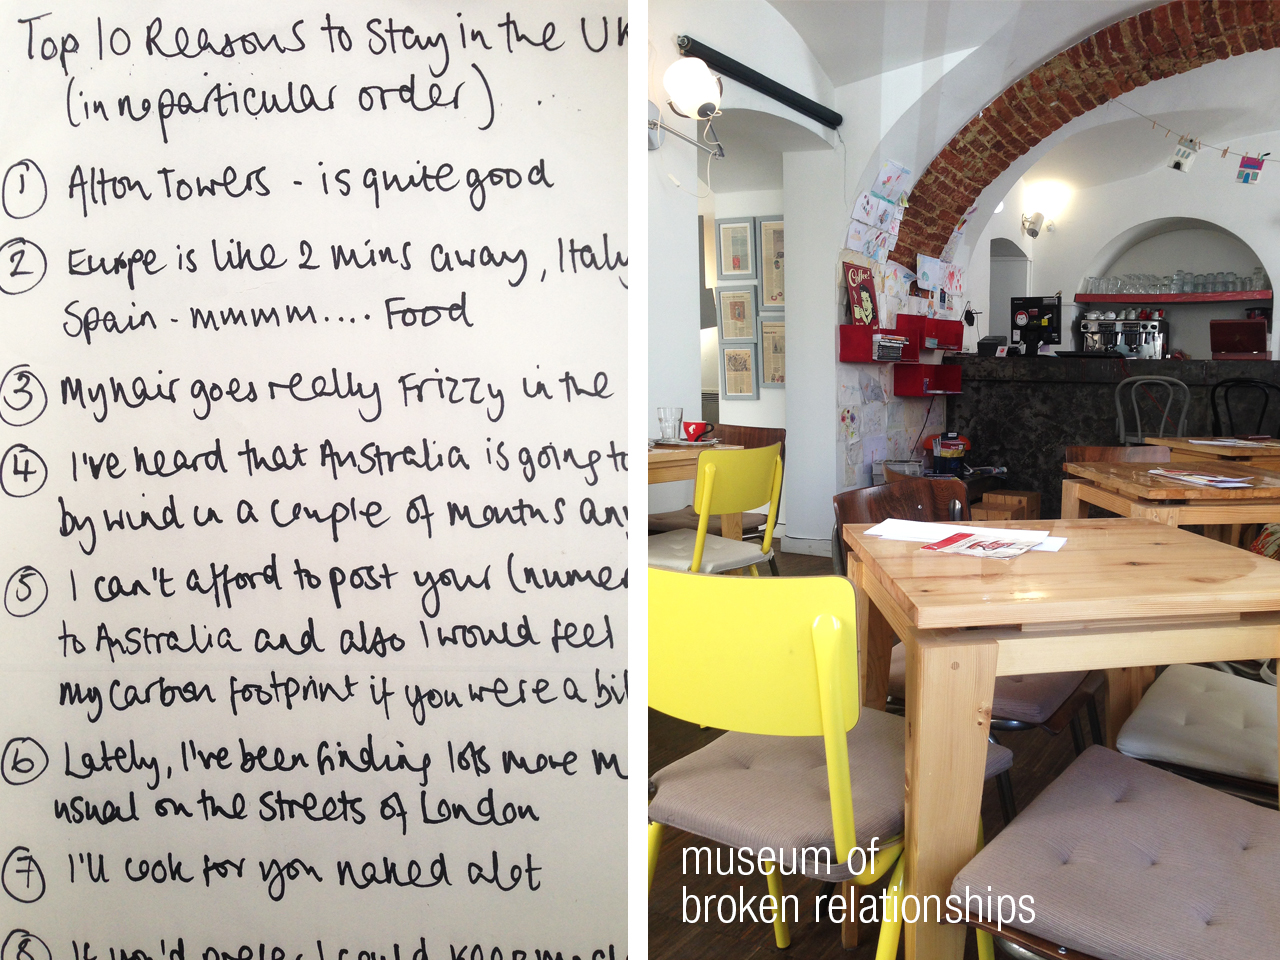 Top 10 Reasons to Stay in the UK
(in no particular order)
1 Alton Towers - is quite good
2 Europe is like 2 mins away, Italy
Spain - mmmm.... Food
3 My hair goes really Frizzy in the
4 I've heard that Australia is going to
by wind in a couple of months any
5 I can't afford to post your (numer
to Australia and also I would feel
my carbon footprint if you were a bi
6 Lately, I've been finding lots more m
usual on the streets of London
7 I'll cook for you naked alot
8 If you'd prefer, I could keep my cl
Coffee!
museum of
broken relationships